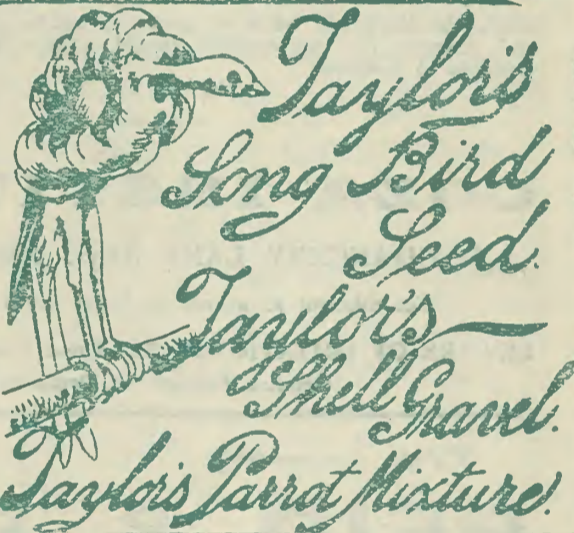 Taylor's
Song Bird
Seed.
Taylor's
Shell Gravel.
Taylor's Parrot Mixture.